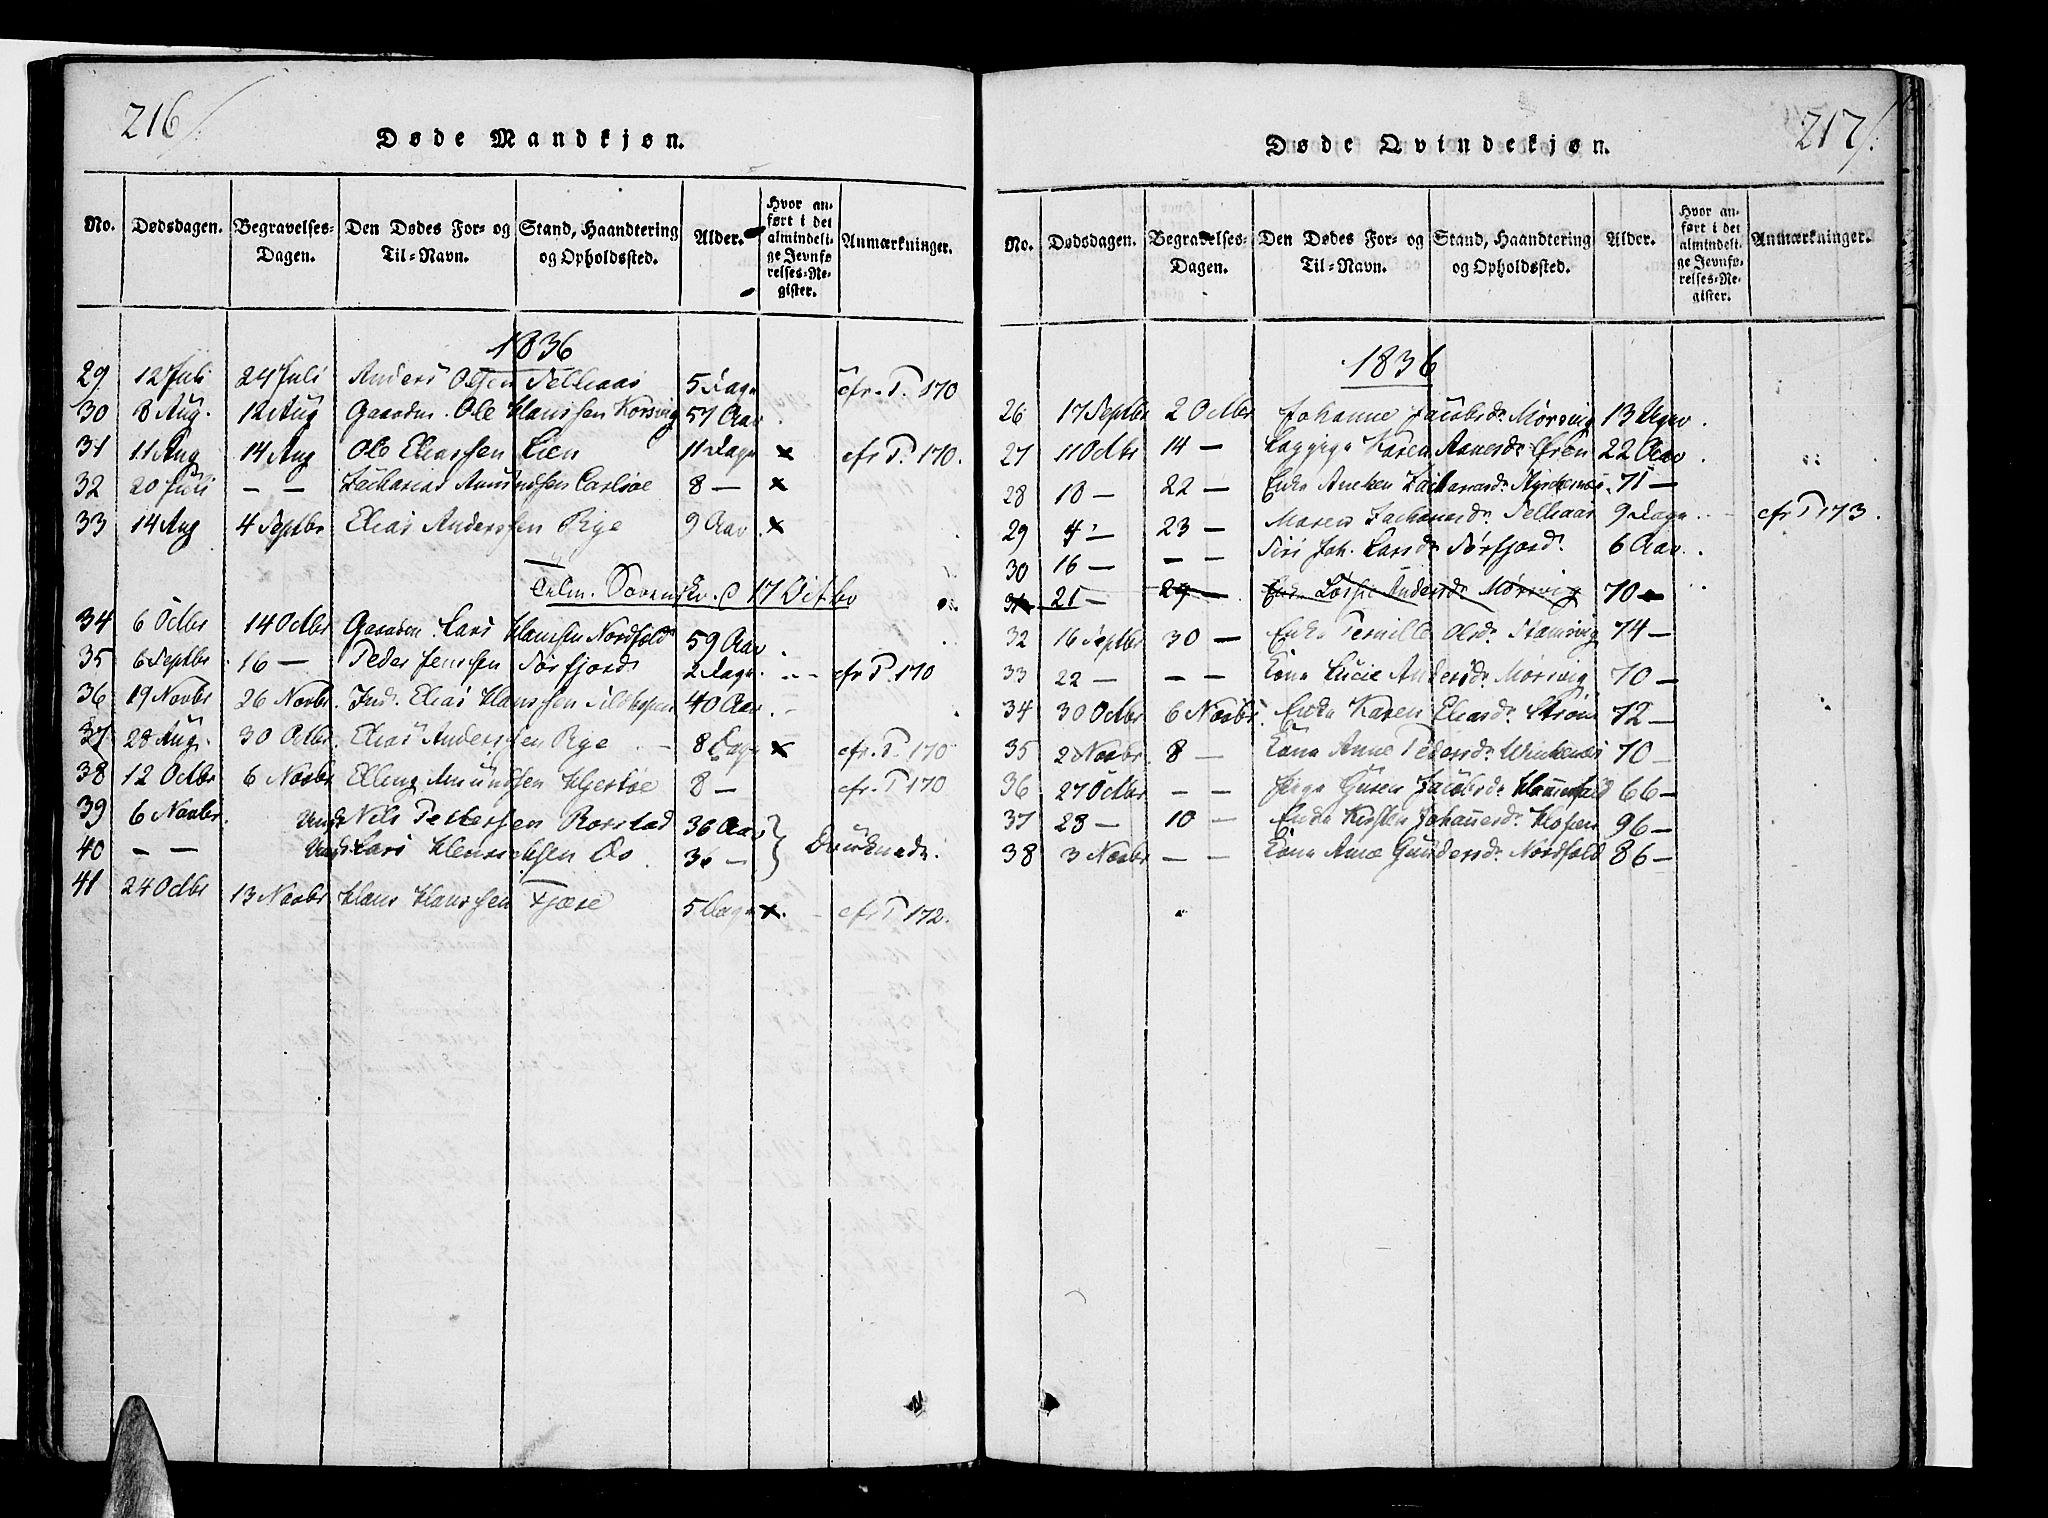 216/.
Døde Mandkjøn.
No. Dødsdagen. Begravelses-Dagen. Den Dødes For- og Til-Navn. Stand, Haandtering og Opholdssted. Alder. Hvor anført i det almindelige Jevnførelses-Register. Anmærkninger.
1836
29 12 Juli 24 Juli Anders Olsen Fellvaas 5 Dage cfr. P. 170
30 8 Aug. 12 Aug Gaardm. Ole Hanssen Korsvig 57 Aar
31 11 Aug 14 Aug Ole Eliassen Lien 11 Dage × cfr P. 170.
32 20 Juli — — Zacharias Amundsen Carlsøe 8 — ×
33 14 Aug 4 Septbr Elias Anderssen Rye 9 Aar ×
17 Octbr
34 6 Octbr 14 Octbr Gaardm. Lars Hanssen Nordfold 59 Aar
35 6 Septbr 16 — Peder Jenssen Sørfjord 2 Dage cfr P. 170
36 19 Novbr 26 Novbr. Ind. Elias Hanssen 40 Aar
37 28 Aug. 30 Octbr. Elias Anderssen Rye 8 Dage × cfr. P. 170
38 12 Octbr 6 Novbr Elling Amundsen Hjertøe 8 — cfr. P 170
39 6 Novbr. Ungk Nils Pettersen Rørstad 36 Aar } Druknede.
40 — — Ungk Lars Henrichsen Os 36 —
41 24 Octbr 13 Novbr Hans Hanssen Kjære 5 Dage × cfr P 172.
217/.
Døde Qvindekjøn.
No. Dødsdagen. Begravelses-Dagen. Den Dødes For- og Til-Navn. Stand, Haandtering og Opholdssted. Alder. Hvor anført i det almindelige Jevnførelses-Register. Anmærkninger.
1836
26 17 Septbr 2 Octbr Johanne Jacobsd. Mørsvig 13 Uger
27 11 Octbr 14 — Karen Aanesd. 22 Aar
28 18 — 22 — Enke Anne Zachariasd. 71 —
29 4 — 23 — Maren Zachariasd. Fellvaas 9 Dage cfr P 173.
30 16 — — — Siri Joh. Larsd. Sørfjord. 6 Aar
31 21 — 29 — Andersd. Mørsvig 70 —
32 16 Septbr 30 — Enke Pernille Olsd. Stamsvig 74 —
33 22 — — — Kone Lucie Andersd. Mørsvig 70 —
34 30 Octbr 6 Novbr. Enke Karen Eliasd. Strøm 72 —
35 2 Novbr. 8 — Kone Anne Pedersd. Winkenæs 70 —
36 27 Octbr — — Pige Guren Jacobsd. Hammerfald 66 —
37 28 — 10 — Enke Kirsten Johannesd. Hopen 96 —
38 3 Novbr — — Kone Ane Gundersd. Nordfold 86 —